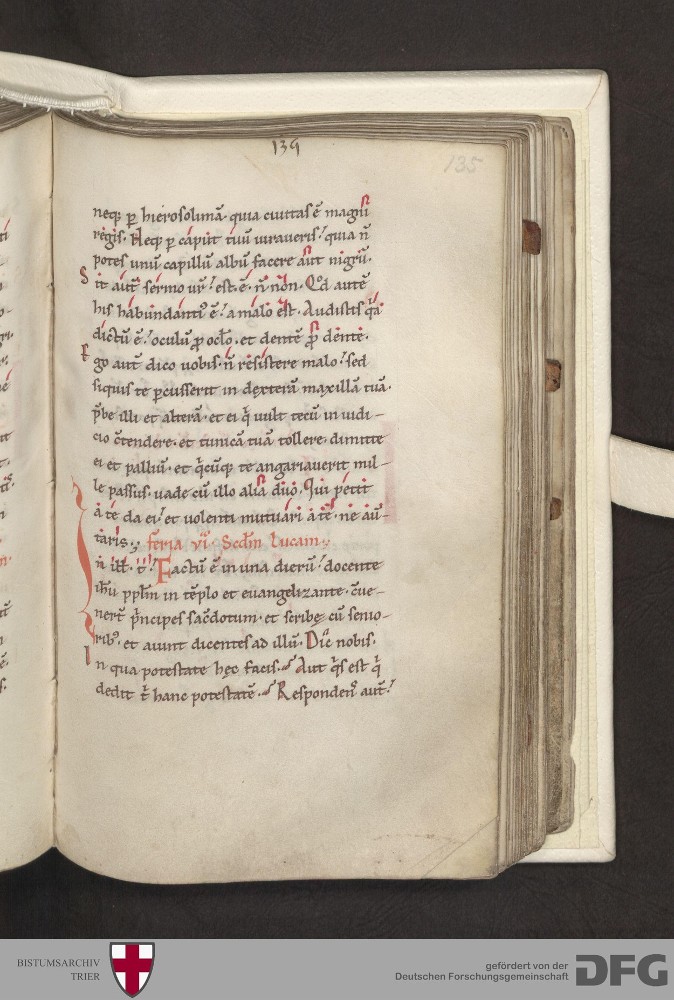 139
135
neq; ꝑ hierosolimā. quia ciuitas ē magni
regis. Neq; ꝑ caput tuū iuraueris. quia ñ
potes unū capillū albū facere aut nigrū.
Sit autē sermo ur̄. est. ē. ñ non. Qd̄ autē
his habundantiꝰ ē. a malo ēst. Audistis q̄a
dictū ē. oculū ꝓ oclo. et dentē ꝓ dente.
Ego aut̄ dico uobis. ñ resistere malo. sed
siquis te ꝑcusserit in dexterā maxillā tuā.
p̄be illi et alterā. et ei q̄ uult tecū in iudi-
cio c̄tendere. et tunicā tuā tollere. dimitte
ei et palliū. et q̄cūq; te angariauerit mil-
le passus. uade cū illo alia duo. Qui petit
a te da ei. et uolenti mutuari a te. ne au-
taris; feria vi. Scdm̄ Lucam.
In ill̄. t̄. Factū ē in una dierū. docente
ih̄u ppl̄m in tēplo et euangelizante. c̄ue-
nerт̄ p̄ncipes sac̄dotum. et scribe cū senio-
ribꝰ. et aiunt dicentes ad illū. Dic nobis.
In qua potestate hec facis. Aut q̄s est q̄
dedit t̄ hanc potestatē. Respondens aut̄.
BISTUMSARCHIV
TRIER
gefördert von der
Deutschen Forschungsgemeinschaft
DFG